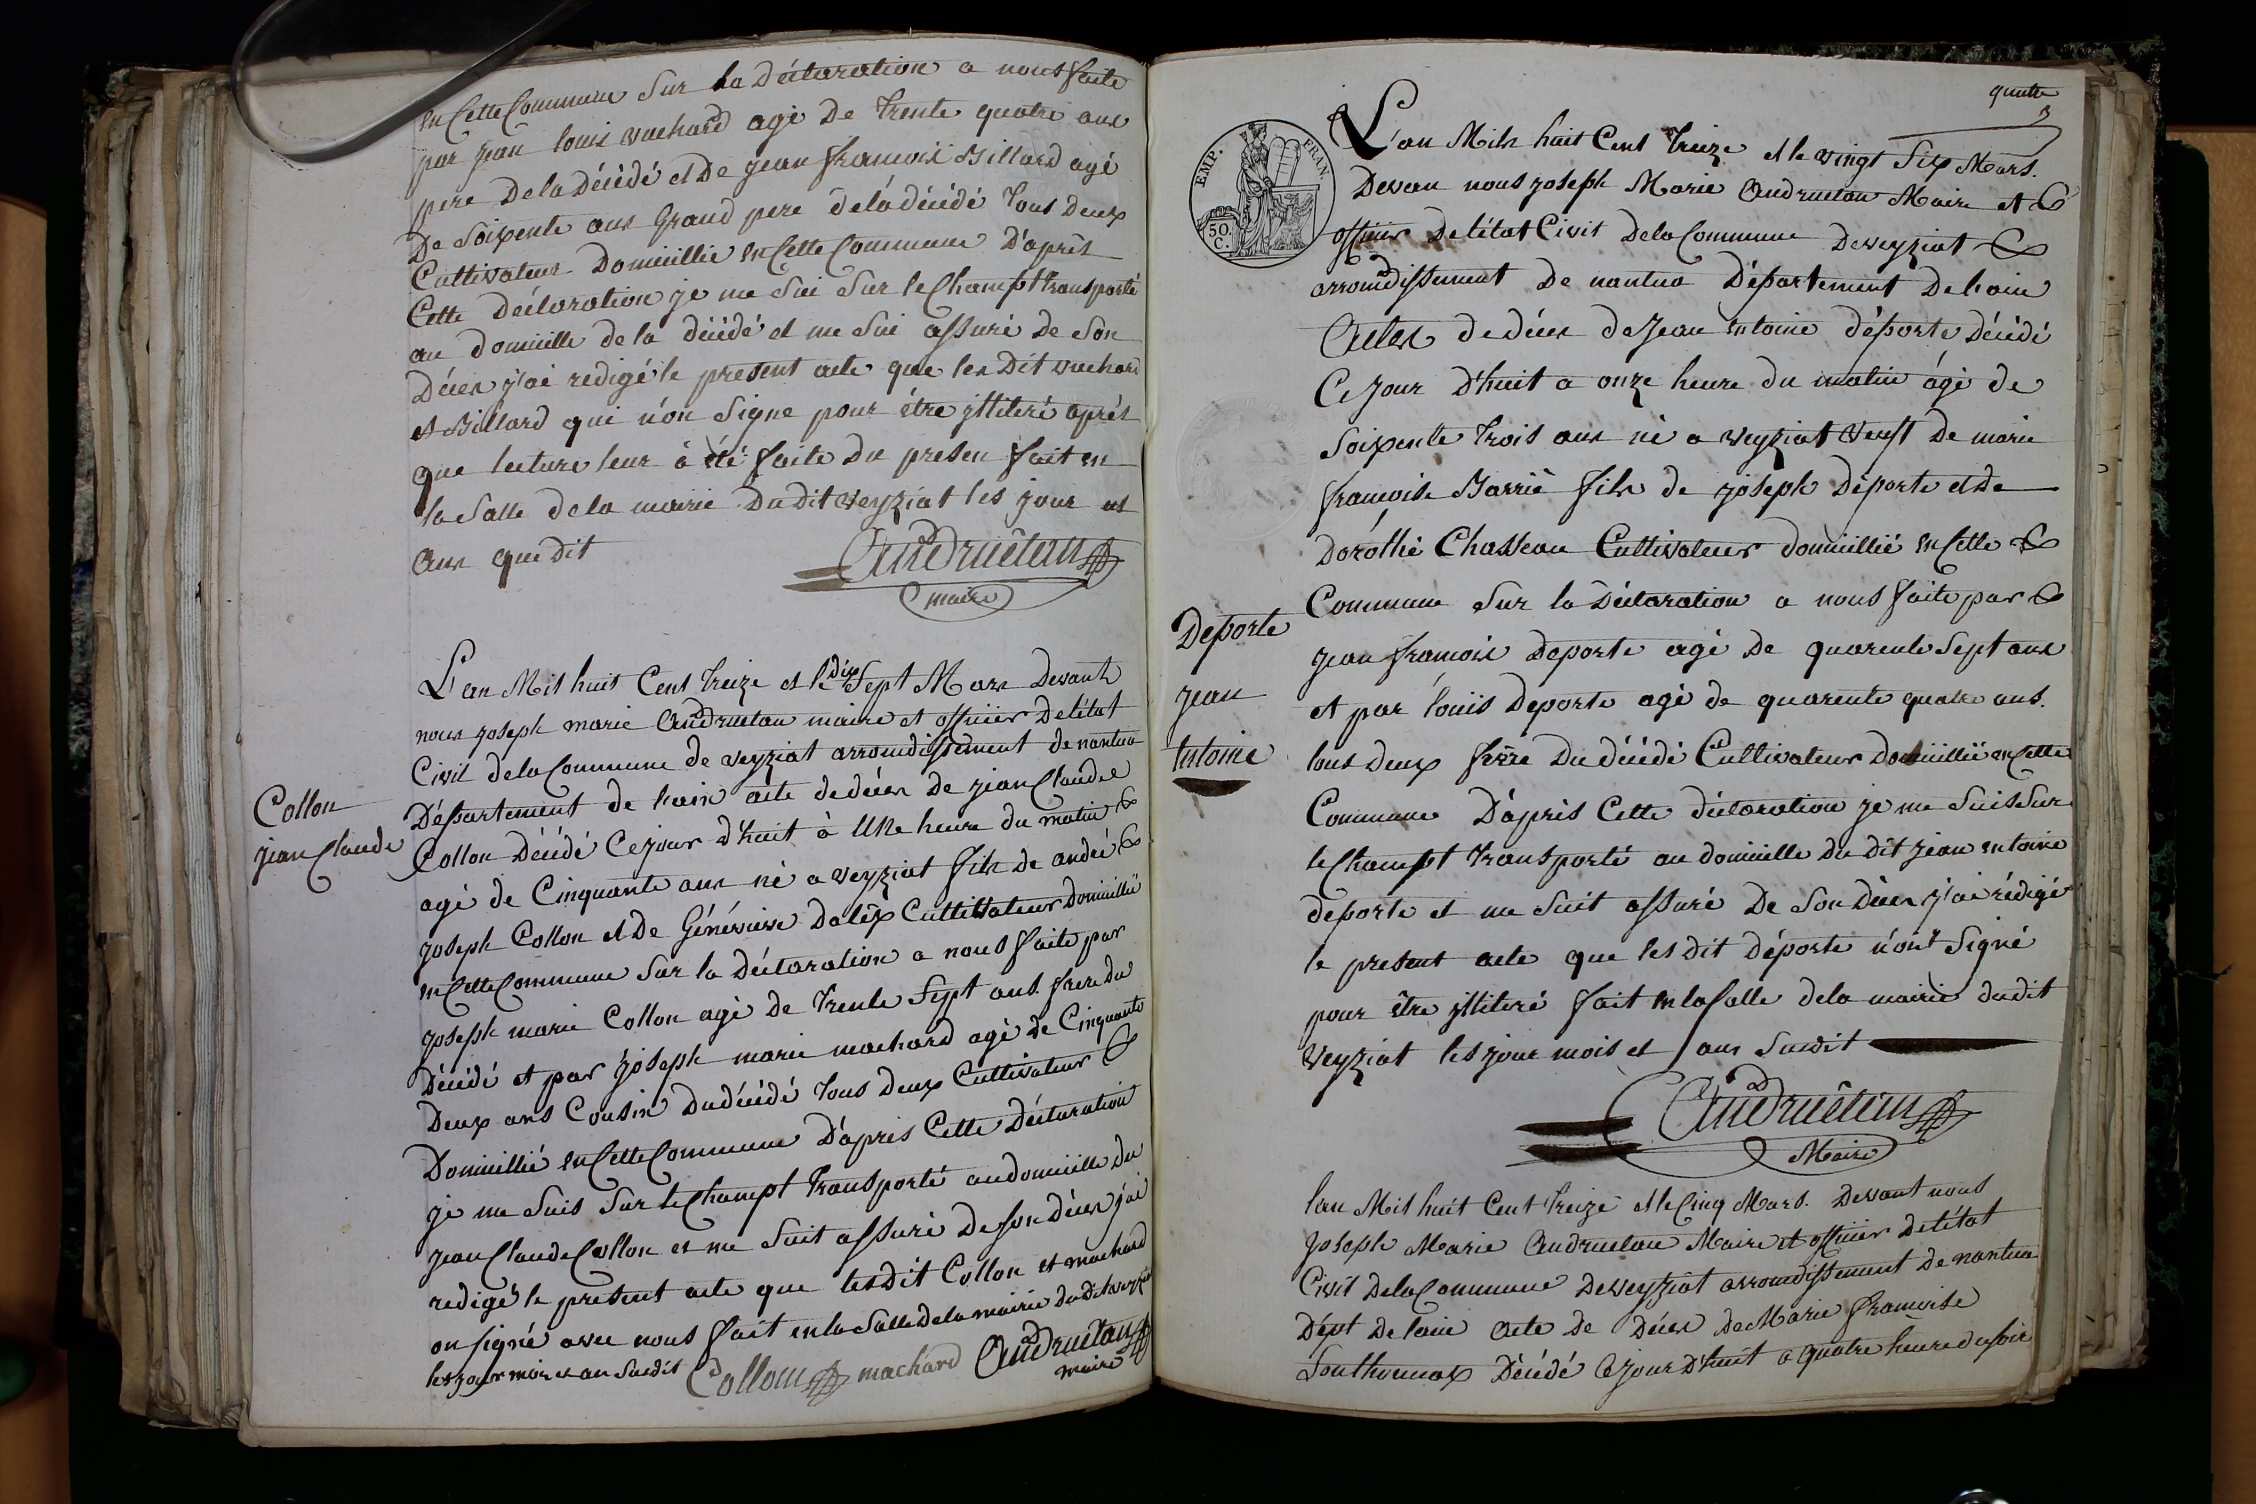 en Cette Commune Sur la Déclaration a nous faite
par jean louis vuchard agé De trente quatre ans
pere De la Décédé et De jean francois Billard agé
De Soixente ans Grand pere de la décédé tous Deux
Cultivateur Domicillié en Cette Commune D'après
Cette Déclaration je me Sui Sur le Champt transporté
au domicille de la décédé et me Sui assuré de Son
Décés j'ai redigé le present acte que les Dit vuchard
et Billard qui n'on Signe pour étre illiteré aprés
que lecture leur à été faite Du presen fait en
la Salle de la mairie Du dit veyziat les jour et
Ans que dit
Andruétan
maire
Collon
jean Claude
L'an Mil huit Cent treize et le dix Sept Mars Devant
nous joseph marie Andruetan maire et officier De l'état
Civil de la Commune de veyziat arroundissement de nantua
Département de l'ain acte de décés de jean Claude
Collon Décédé Ce jour d'huit à Une heure du matin
agé de Cinquante ans né a veyziat fils de andré
joseph Collon et De Généviève Daléx Cultivateur Domicillié
en Cette Commune Sur la Déclaration a nous faite par
joseph marie Collon agé de trente Sept ans frere du
Décédé et par joseph marie machard agé de Cinquante
Deux ans Cousin Du décédé tous Deux Cultivateur
Domicillié en Cette Commune D'apres Cette Déclaration
je me Suis Sur le Champt transporté au domicille du
jean Claude Collon et me Suit assuré De son décés j'ai
redigé le present acte que les dit Collon et machard
on signé avec nous fait en la Salle de la mairie du dit veyziat
les jour mois et an Susdit
Collon machard Andruétan
maire
quatre
EMP. FRAN.
50.
C.
L'an Mils huit Cent treize et le vingt Six Mars.
Devan nous joseph Marie Andruetan Maire et
officier De l'état Civil De la Commune De veyziat
arroundissement De nantua Département De l'ain
Actes de décés de Jean entoine déporte Décédé
Ce jour D'huit a onze heure du matin ágé de
Soixente trois ans né a veyziat Veuft De marie
francoise Barrié fils de joseph Déporte et de
Dorothé Chasseau Cultivateur domicillié en Cette
Commune Sur la Déclaration a nous faite par
jean francois deporte agé De quarente Sept ans
et par louis Deporte agé de quarente quatre ans.
tous deux frere Du décédé Cultivateur Domicillié en Cette
Commune D'après Cette déclaration je me Suis Sur
le Champt transporté au domicille du dit jean entoine
deporte et me Suit assuré De Son Décés j'ai rédigé
le present acte que les dit déporte n'ont Signé
pour être illiteré fait en la Salle de la mairie du dit
Veyziat les jour mois et ans Susdit
Deporte
jean
entoine
Andruétan
Maire
l'an Mil huit Cent treize et le Cinq Mars. Devant nous
joseph Marie Andruetan Maire et officier De l'état
Civil De la Commune De veyziat arroundissement De nantua
Dépt De l'ain Acte de Décés De Marie francoise
Southonnax Décédé Ce jour D'huit a quatre heure du soir